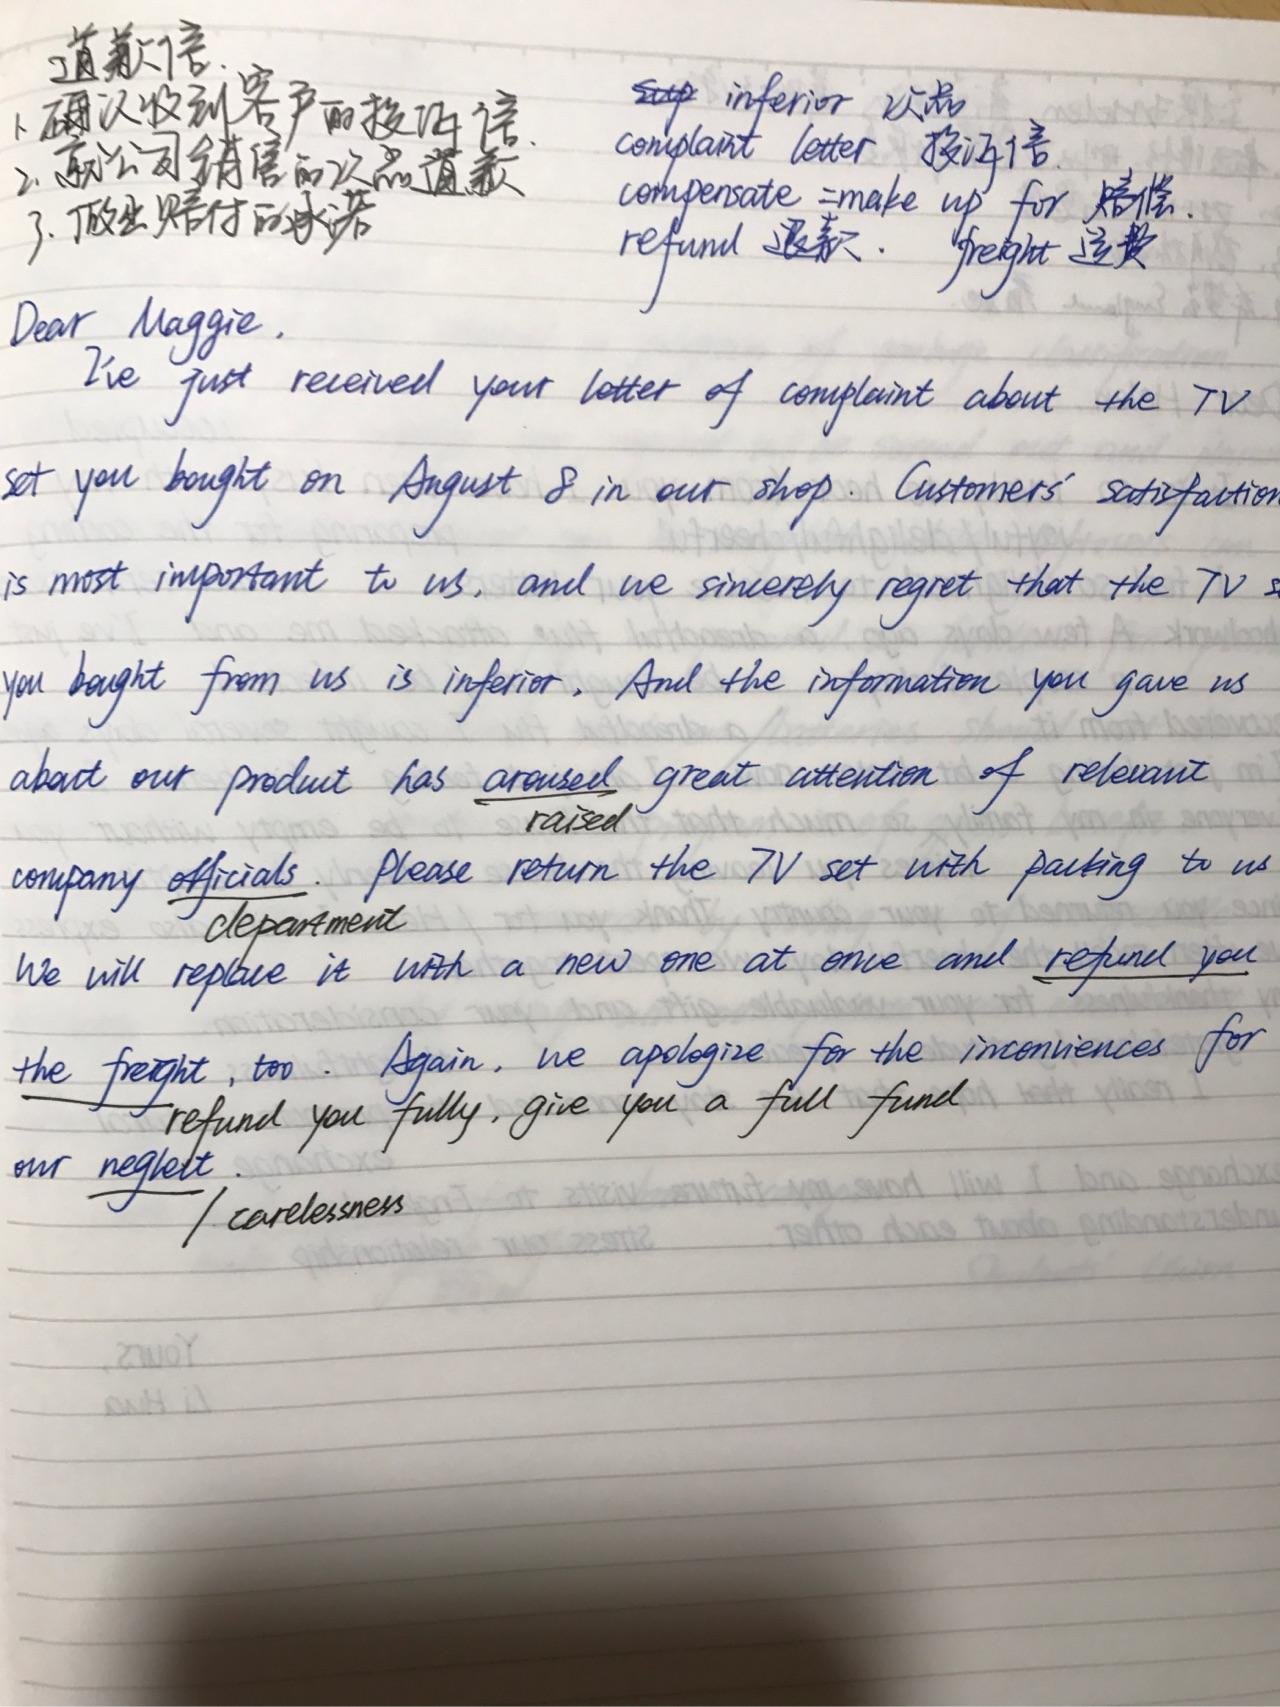 道歉信.
1. 确认收到客户的投诉信.
2. 就公司销售的次品道歉
3. 做出赔付的承诺
inferior 次品
complaint letter 投诉信.
compensate =make up for 赔偿.
refund 退款. freight 运费
Dear Maggie,
I've just received your letter of complaint about the TV
set you bought on August 8 in our shop. Customers' satisfaction
is most important to us, and we sincerely regret that the TV
you bought from us is inferior. And the information you gave us
about our product has aroused great attention of relevant
raised
company officials. Please return the TV set with packing to us
department
We will replace it with a new one at once and refund you
the freight, too. Again, we apologize for the inconviences for
refund you fully, give you a full fund
our neglect.
/ carelessness